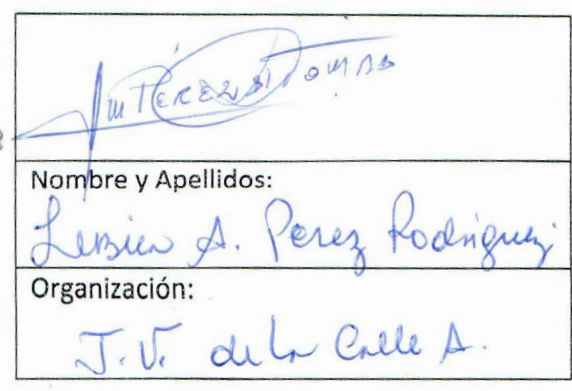 Pérez
Nombre y Apellidos:
A. Perez Rodriguez
Organización:
J.V. de la Calle A.